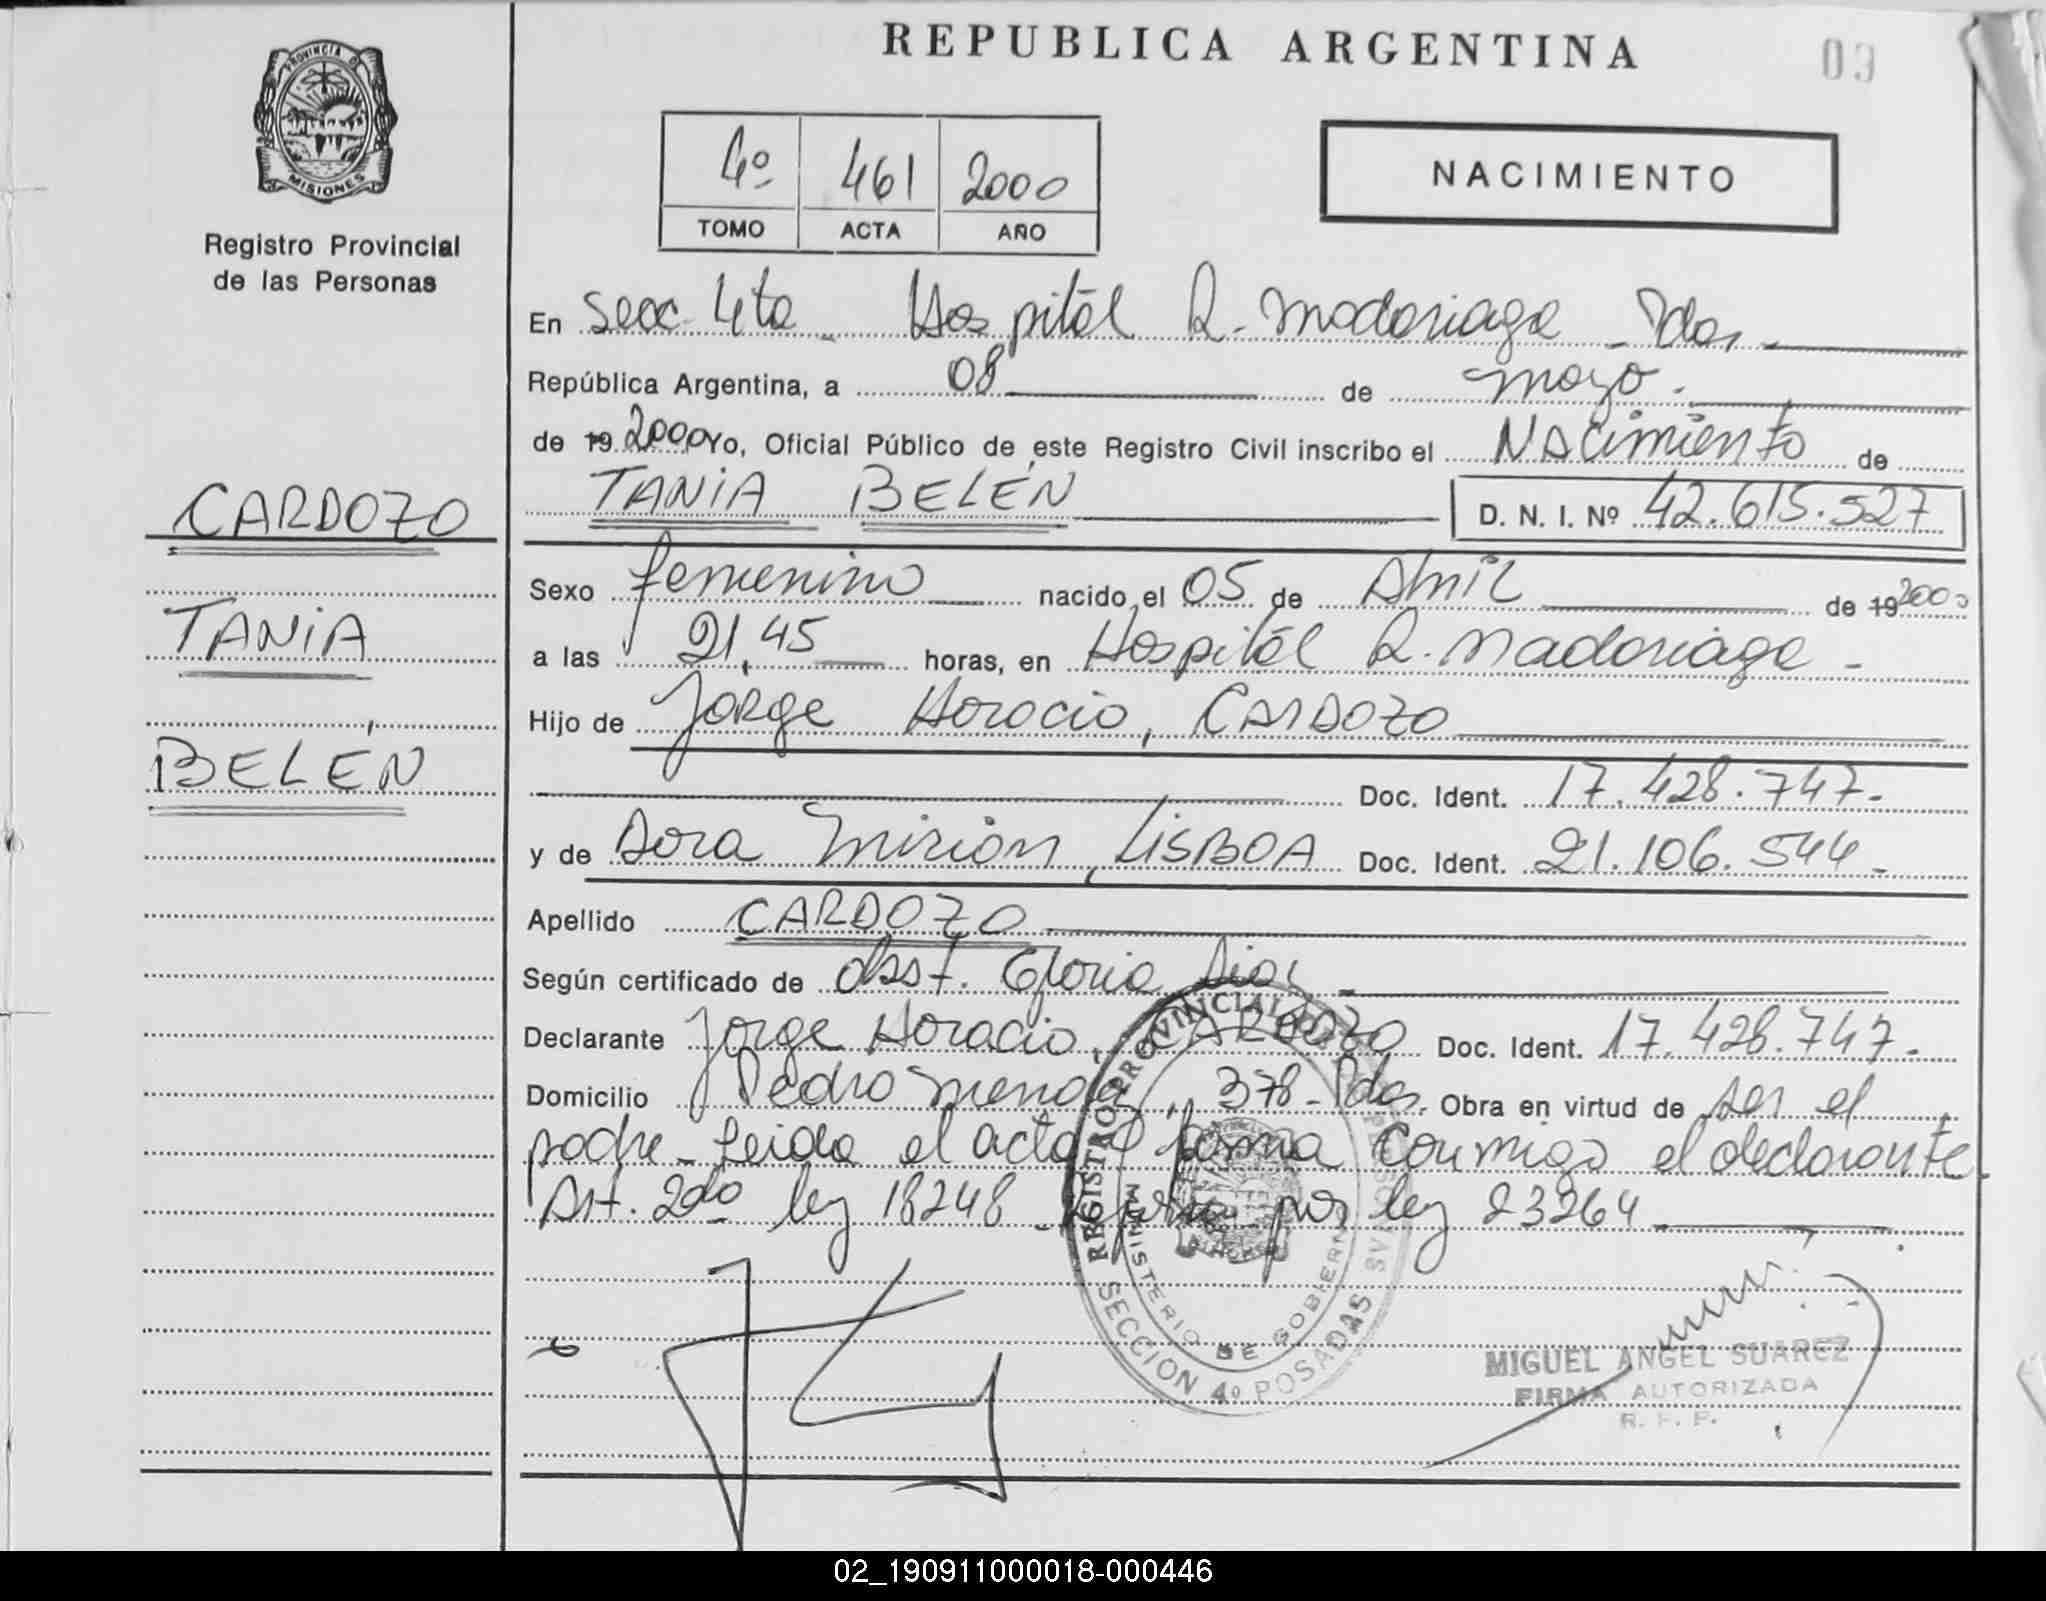 REPUBLICA ARGENTINA
03
PROVINCIA DE
MISIONES
Registro Provincial
de las Personas
4º 461 2000
TOMO ACTA AÑO
NACIMIENTO
En Secc. 4ta Hospital R. Madariaga - Pdas.
República Argentina, a 08 de mayo.
de 19 2000 Yo, Oficial Público de este Registro Civil inscribo el NACimiento de
TANIA BELÉN D. N. I. Nº 42.615.527
CARDOZO
TANIA
BELÉN
Sexo femenino nacido el 05 de Abril de 19 2000
a las 21,45 horas, en Hospital R. Madariaga -
Hijo de Jorge Horacio, CARDOZO
Doc. Ident. 17.428.747.-
y de Dora Mirian, LISBOA Doc. Ident. 21.106.544.-
Apellido CARDOZO
Según certificado de obst. Gloria
Declarante Jorge Horacio, CARDOZO Doc. Ident. 17.428.747.-
Domicilio Pedro 378 - Pdas. Obra en virtud de ser el
padre - Leida el acta firma conmigo el declarante.
Art. 2do ley 18248 por ley 23264
REGISTRO PROVINCIAL DE LAS PERSONAS
MINISTERIO DE GOBIERNO
SECCION 4º POSADAS
MIGUEL ANGEL SUAREZ
FIRMA AUTORIZADA
02_190911000018-000446